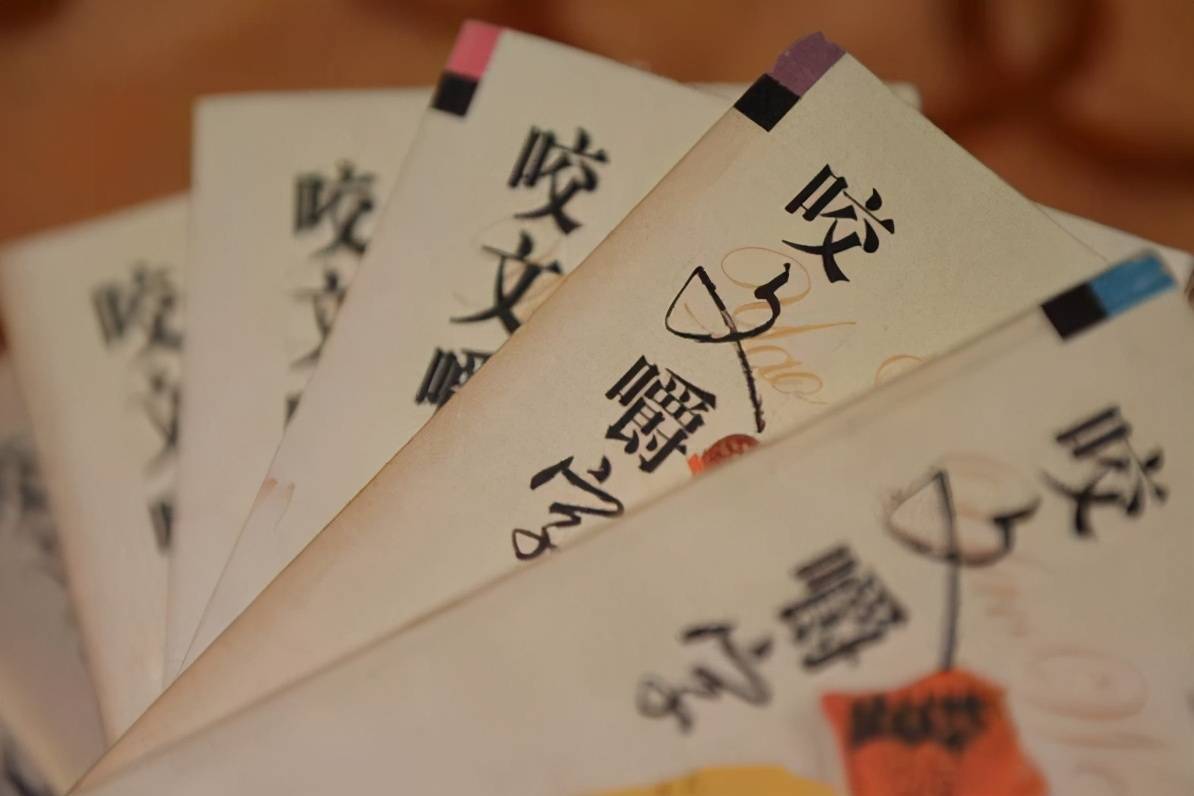 咬文
咬文
咬文嚼
咬文嚼字
Yao
咬文嚼字